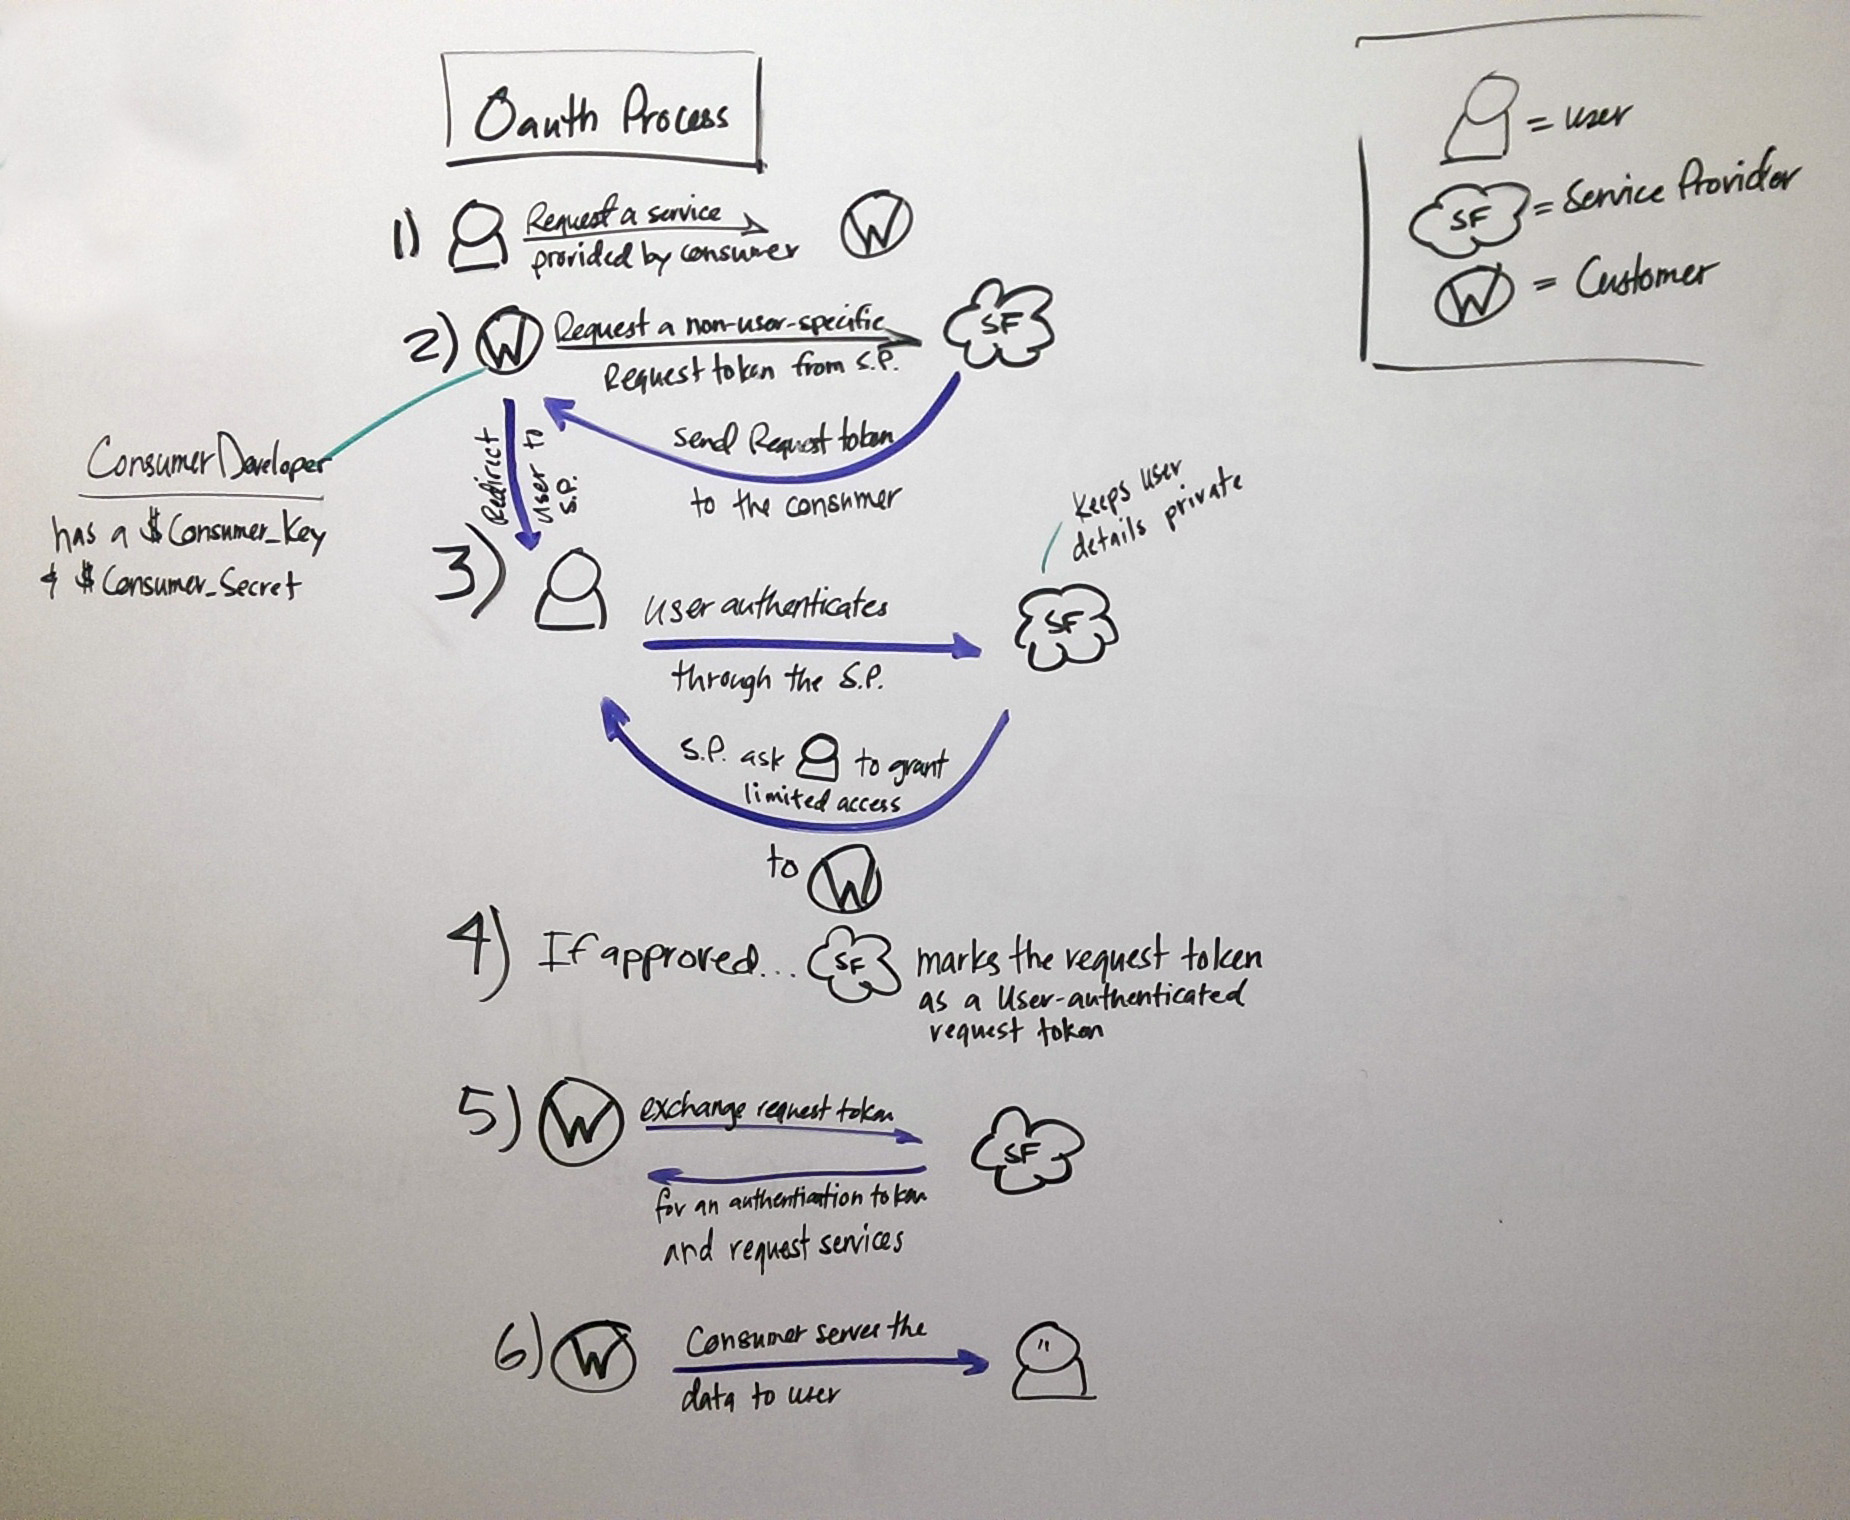 Oauth Process
= user
SF = Service Provider
W = Customer
1) Request a service W
provided by consumer
2) W Request a non-user-specific SF
Request token from S.P.
Send Request token
to the consumer
Redirect
User to
S.P.
Consumer Developer
has a $Consumer_Key
& $Consumer_Secret
keeps user
details private
3) User authenticates SF
through the S.P.
S.P. ask to grant
limited access
to W
4) If approved... SF marks the request token
as a User-authenticated
request token
5) W exchange request token SF
for an authentication token
and request services
6) W Consumer serves the
data to user